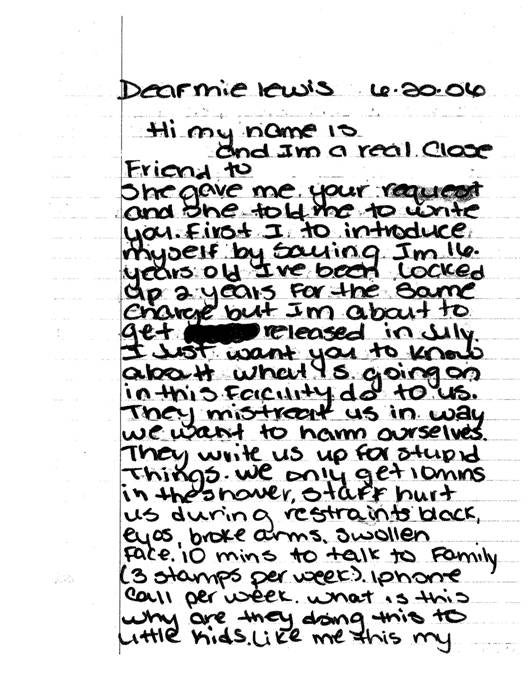 Dear mie lewis 6.20.06
Hi my name is
and Im a real Close
Friend to
She gave me your request
and she told me to write
you. First I to introduce
myself by saying Im 16.
years old I've been locked
up 2 years for the same
charge but Im about to
get released in July.
I Just want you to know
about what is going on
in this Facility do to us.
They mistreat us in way
we want to harm ourselves.
They write us up for stupid
Things. We only get 10mns
in the shower, staff hurt
us during restraints black,
eyes, broke arms, swollen
Face. 10 mins to talk to Family
(3 stamps per week). 1phone
Call per week. what is this
why are they doing this to
Little kids. Like me this my